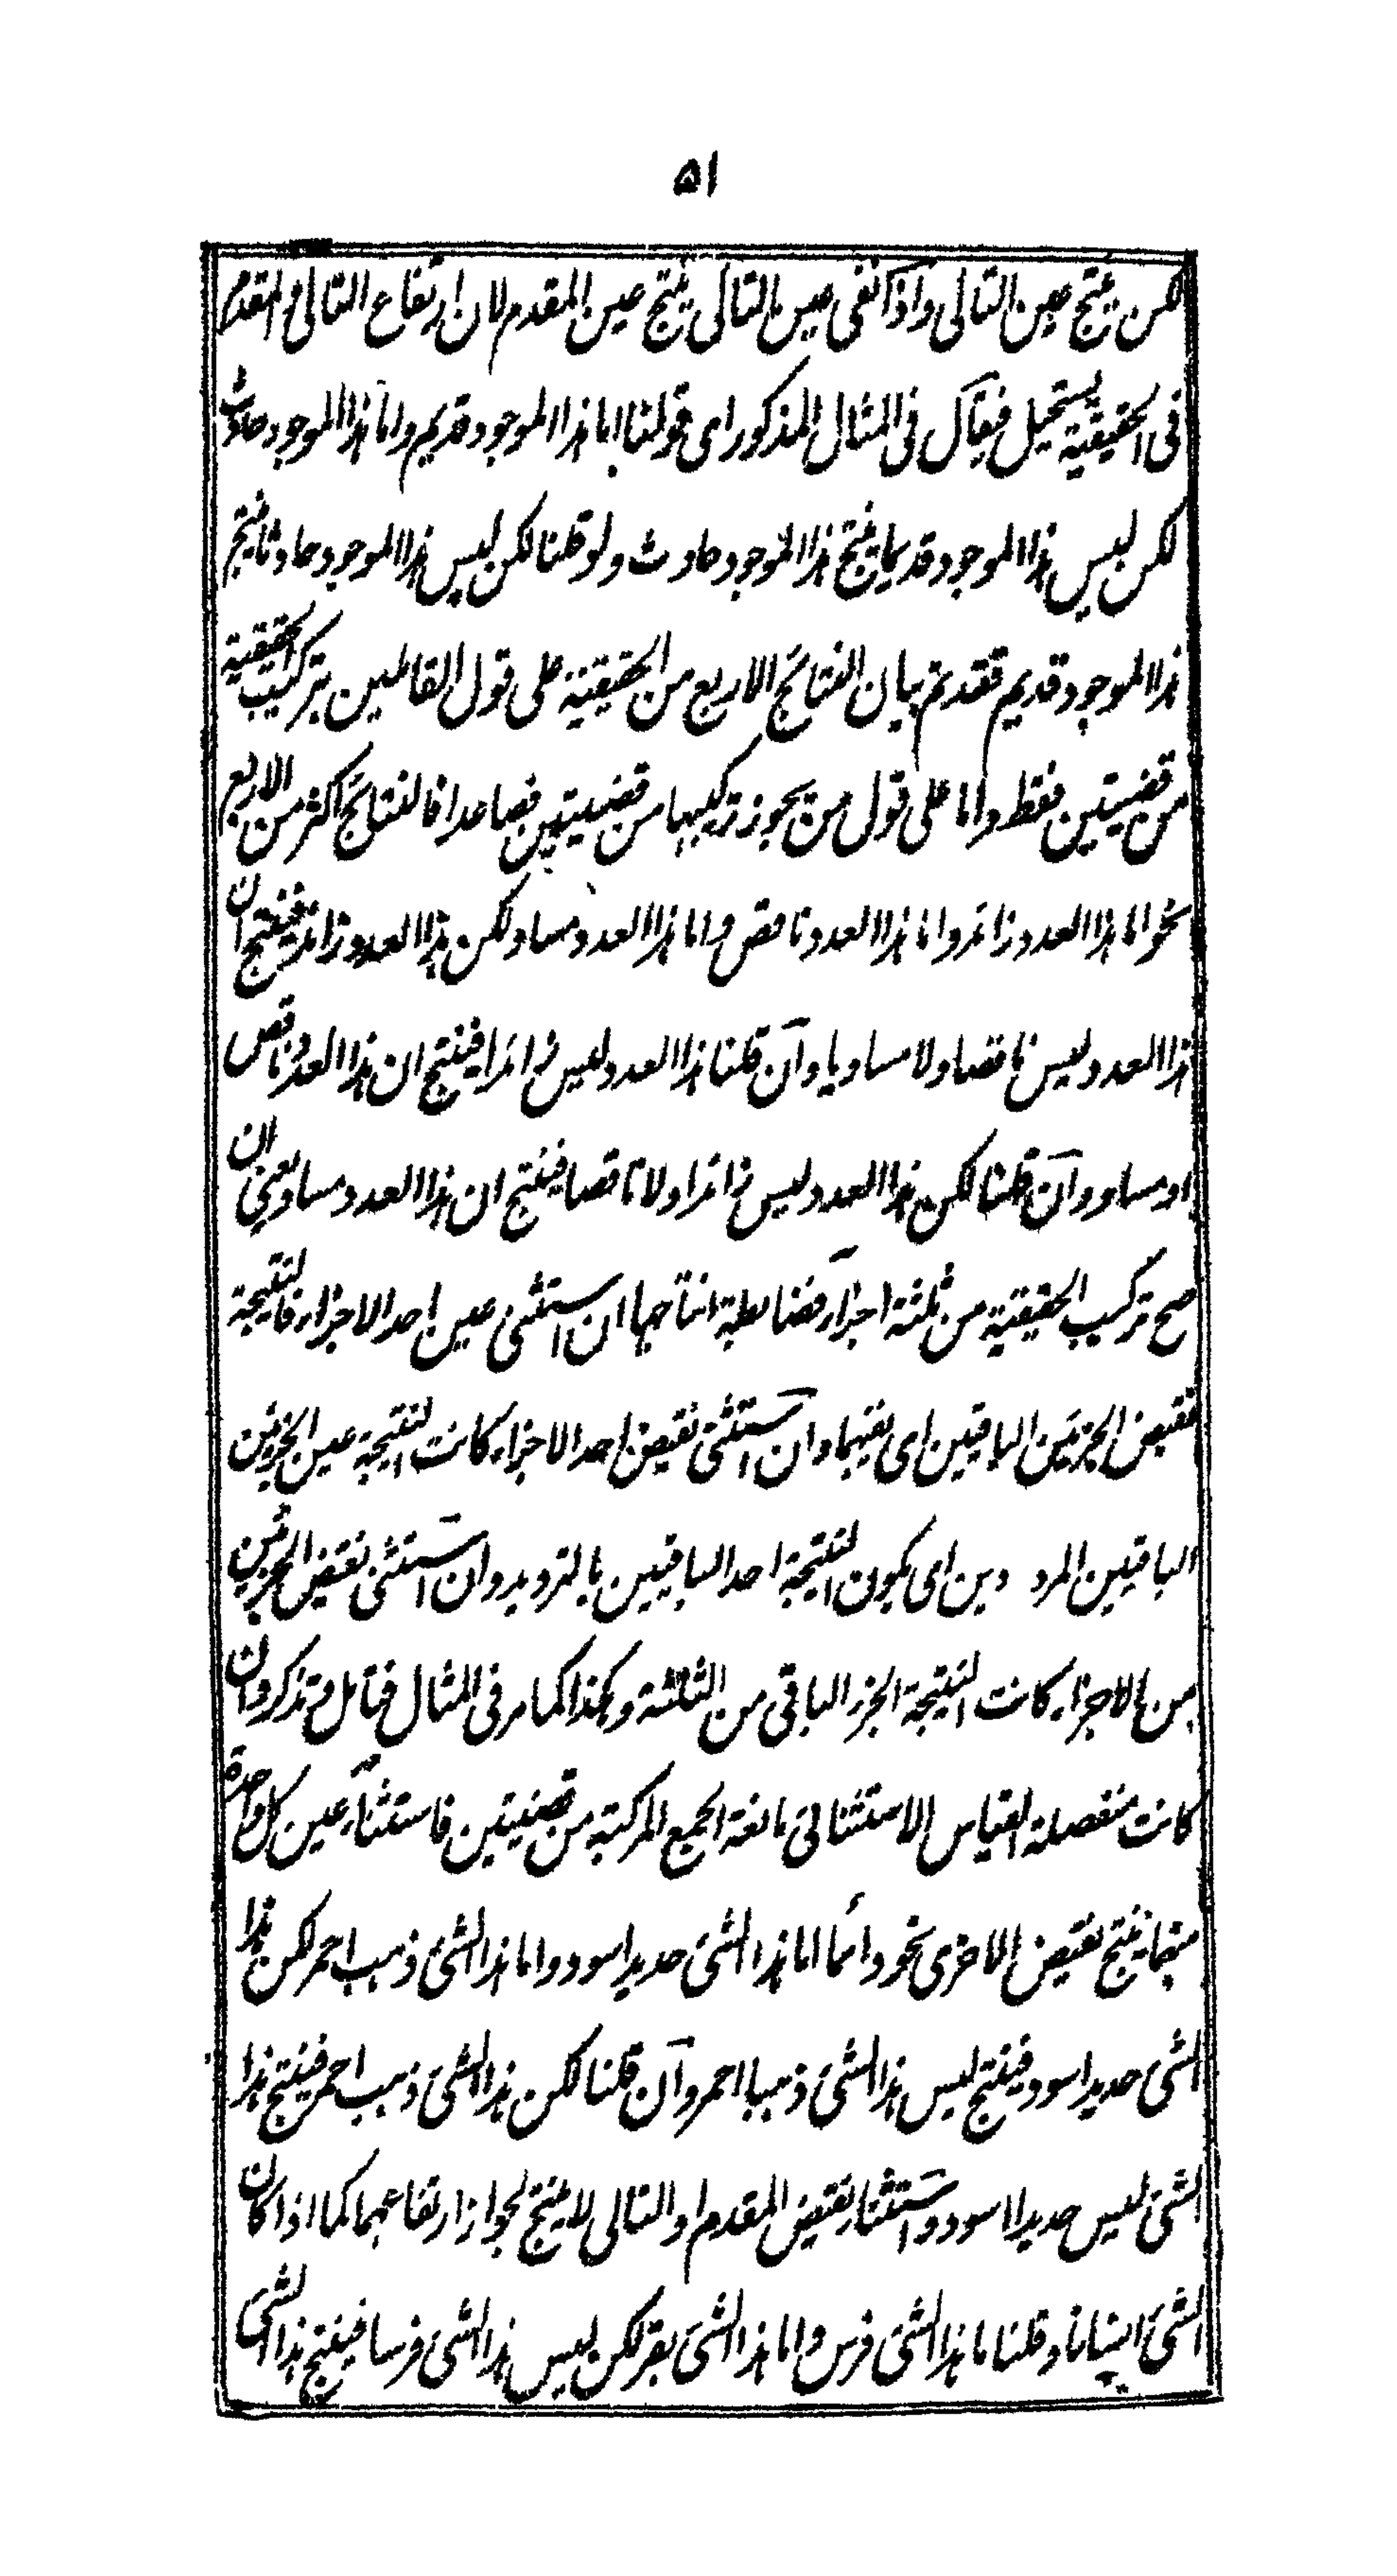 ٥١
لكن ينتج عين التالى واذا نفى عين التالى ينتج عين المقدم لان ارتفاع التالى والمقدم
فى الحقيقية يستحيل فيقال فى المثال المذكور اى قولنا اما هذا الموجود قديم واما هذا الموجود حادث
لكن ليس هذا الموجود قديما ينتج هذا الموجود حادث ولو قلنا لكن ليس هذا الموجود حادثا ينتج
هذا الموجود قديم فقد تم بيان النتائج الاربع من الحقيقية على قول القائلين بتركيب الحقيقية
من قضيتين فقط واما على قول من يجوز تركيبها من قضيتين فصاعدا فالنتائج اكثر من الاربع
نحو اما هذا العدد زائد واما هذا العدد ناقص واما هذا العدد مساو لكن هذا العدد زائد فينتج ان
هذا العدد ليس ناقصا ولا مساويا وان قلنا هذا العدد ليس زائدا فينتج ان هذا العدد ناقص
او مساو وان قلنا لكن هذا العدد ليس زائدا ولا ناقصا فينتج ان هذا العدد مساو يعنى ان
صح تركيب الحقيقية من ثلثة اجزاء فضابطة انتاجها ان استثنى عين احد الاجزاء فالنتيجة
نقيض الجزئين الباقيين اى نفيهما وان استثنى نقيض احد الاجزاء كانت النتيجة عين الجزئين
الباقيين المرددين اى يكون النتيجة احد الباقيين بالترديد وان استثنى نقيض الجزئين
من الاجزاء كانت النتيجة الجزء الباقى من الثلثة وهكذا كما مر فى المثال فتامل وتذكر وان
كانت منفصلة القياس الاستثنائى مانعة الجمع المركبة من قضيتين فاستثناء عين كل واحدة
منهما ينتج نقيض الاخرى نحو دائما اما هذا الشئ حديد اسود واما هذا الشئ ذهب احمر لكن هذا
الشئ حديد اسود فينتج ليس هذا الشئ ذهبا احمر وان قلنا لكن هذا الشئ ذهب احمر فينتج هذا
الشئ ليس حديدا اسود واستثناء نقيض المقدم او التالى لا ينتج لجواز ارتفاعهما كما اذا كان
الشئ انسانا وقلنا اما هذا الشئ فرس واما هذا الشئ بقر لكن ليس هذا الشئ فرسا فينتج هذا الشئ